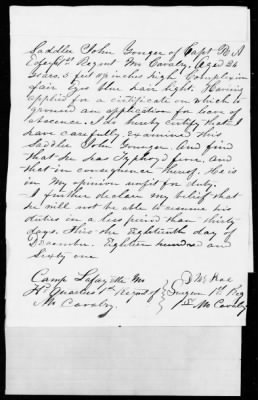 Saddler John Gonger of Capt M A
Regment Mo Cavalry. Aged 24
years 5 feet 9½ inches high Complexion
fair Eyes blue hair light. Having
applied for a certificate on which to
ground an application for leave of
abscence. I do hereby certify that I
have carefully examined this
Saddler John Gonger. And find
that he has Typhoyd fever. And
that in consequence thereof. He is
in My opinion unfit for duty.
I further declare my belief that
he will not be able to resume his
duties in a less period than thirty
days. This the Eighteenth day of
December. Eighteen hundred and
Sixty one
Camp Lafayette Mo
Hd Quarters 1st Regmt of
Mo Cavalry.
J McRae
Surgeon 1st Reg
Mo Cavalry